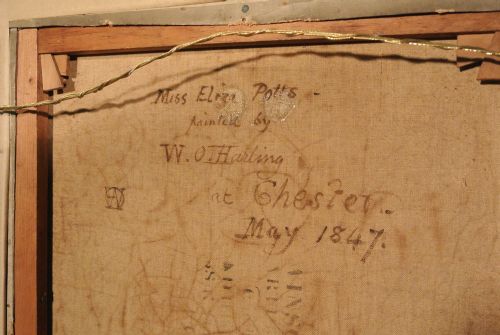 Miss Eliza Potts -
painted by
W. O. Harling
at Chester.
May 1847.